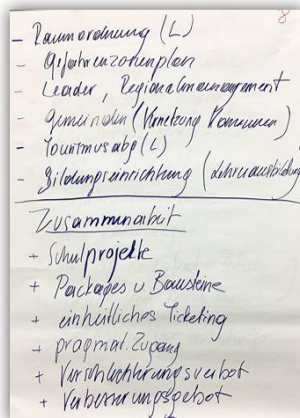 8
- Raumordnung (L)
- Gefahrenzonenplan
- Leader, Regionalmanagement
- Gemeinden (Vernetzung Kommunen)
- Tourismusabg (L)
- Bildungseinrichtung (Lehrausbildung
Zusammenarbeit
+ Schulprojekte
+ Packages u Bausteine
+ einheitliches Ticketing
+ pragmat. Zugang
+ Verschlechterungsverbot
+ Verbesserungsgebot